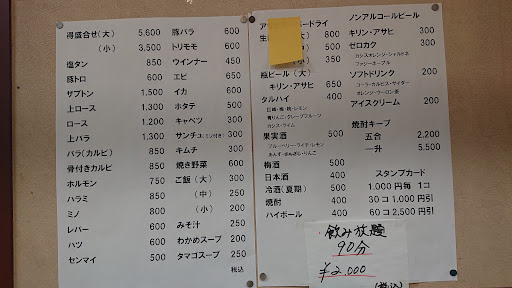 得盛合せ(大) 5,600
(小) 3,500
塩タン 850
豚トロ 600
ザブトン 1,500
上ロース 1,300
ロース 1,200
上バラ 1,300
バラ(カルビ) 850
骨付きカルビ 850
ホルモン 750
ハラミ 850
ミノ 800
レバー 600
ハツ 600
センマイ 500
豚バラ 600
トリモモ 600
ウインナー 450
エビ 650
イカ 600
ホタテ 500
キャベツ 300
サンチュ(ミソ付き) 300
キムチ 300
焼き野菜 600
ご飯(大) 300
(中) 250
(小) 200
みそ汁 250
わかめスープ 250
タマゴスープ 250
税込
ドライ
生 (大) 800
(小) 350
瓶ビール(大)
キリン・アサヒ 650
タルハイ 400
カシス・ライム
果実酒 500
梅酒 400
日本酒 400
冷酒(夏期) 500
焼酎 400
ハイボール 400
ノンアルコールビール
キリン・アサヒ 300
ゼロカク 300
カシスオレンジ・シャルドネ
ファジーネーブル
ソフトドリンク 200
コーラ・カルピス・サイダー
オレンジ・ウーロン茶
アイスクリーム 200
焼酎キープ
五合 2,200
一升 5,500
スタンプカード
1.000円毎 1コ
30コ1.000円引
60コ2.500円引
飲み放題
90分
¥2.000
(税込)